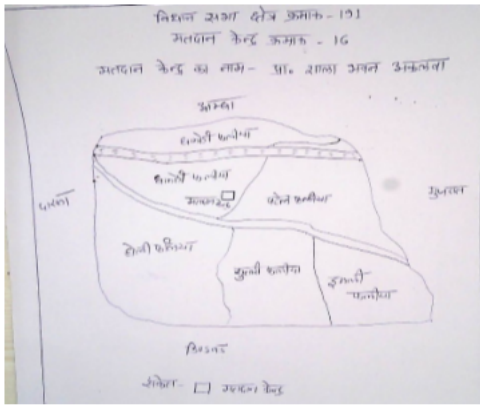 विधान सभा क्षेत्र क्रमांक - 191
मतदान केन्द्र क्रमांक - 16
मतदान केन्द्र का नाम - प्रा. शाला भवन अकलवा
आम्बा
धावेली फलीया
धावेली फलीया
मतदान केन्द्र
पटेल फलीया
गुजरात
होली फलिया
डुल्ली फलीया
इमली
फलीया
संकेत - मतदान केन्द्र